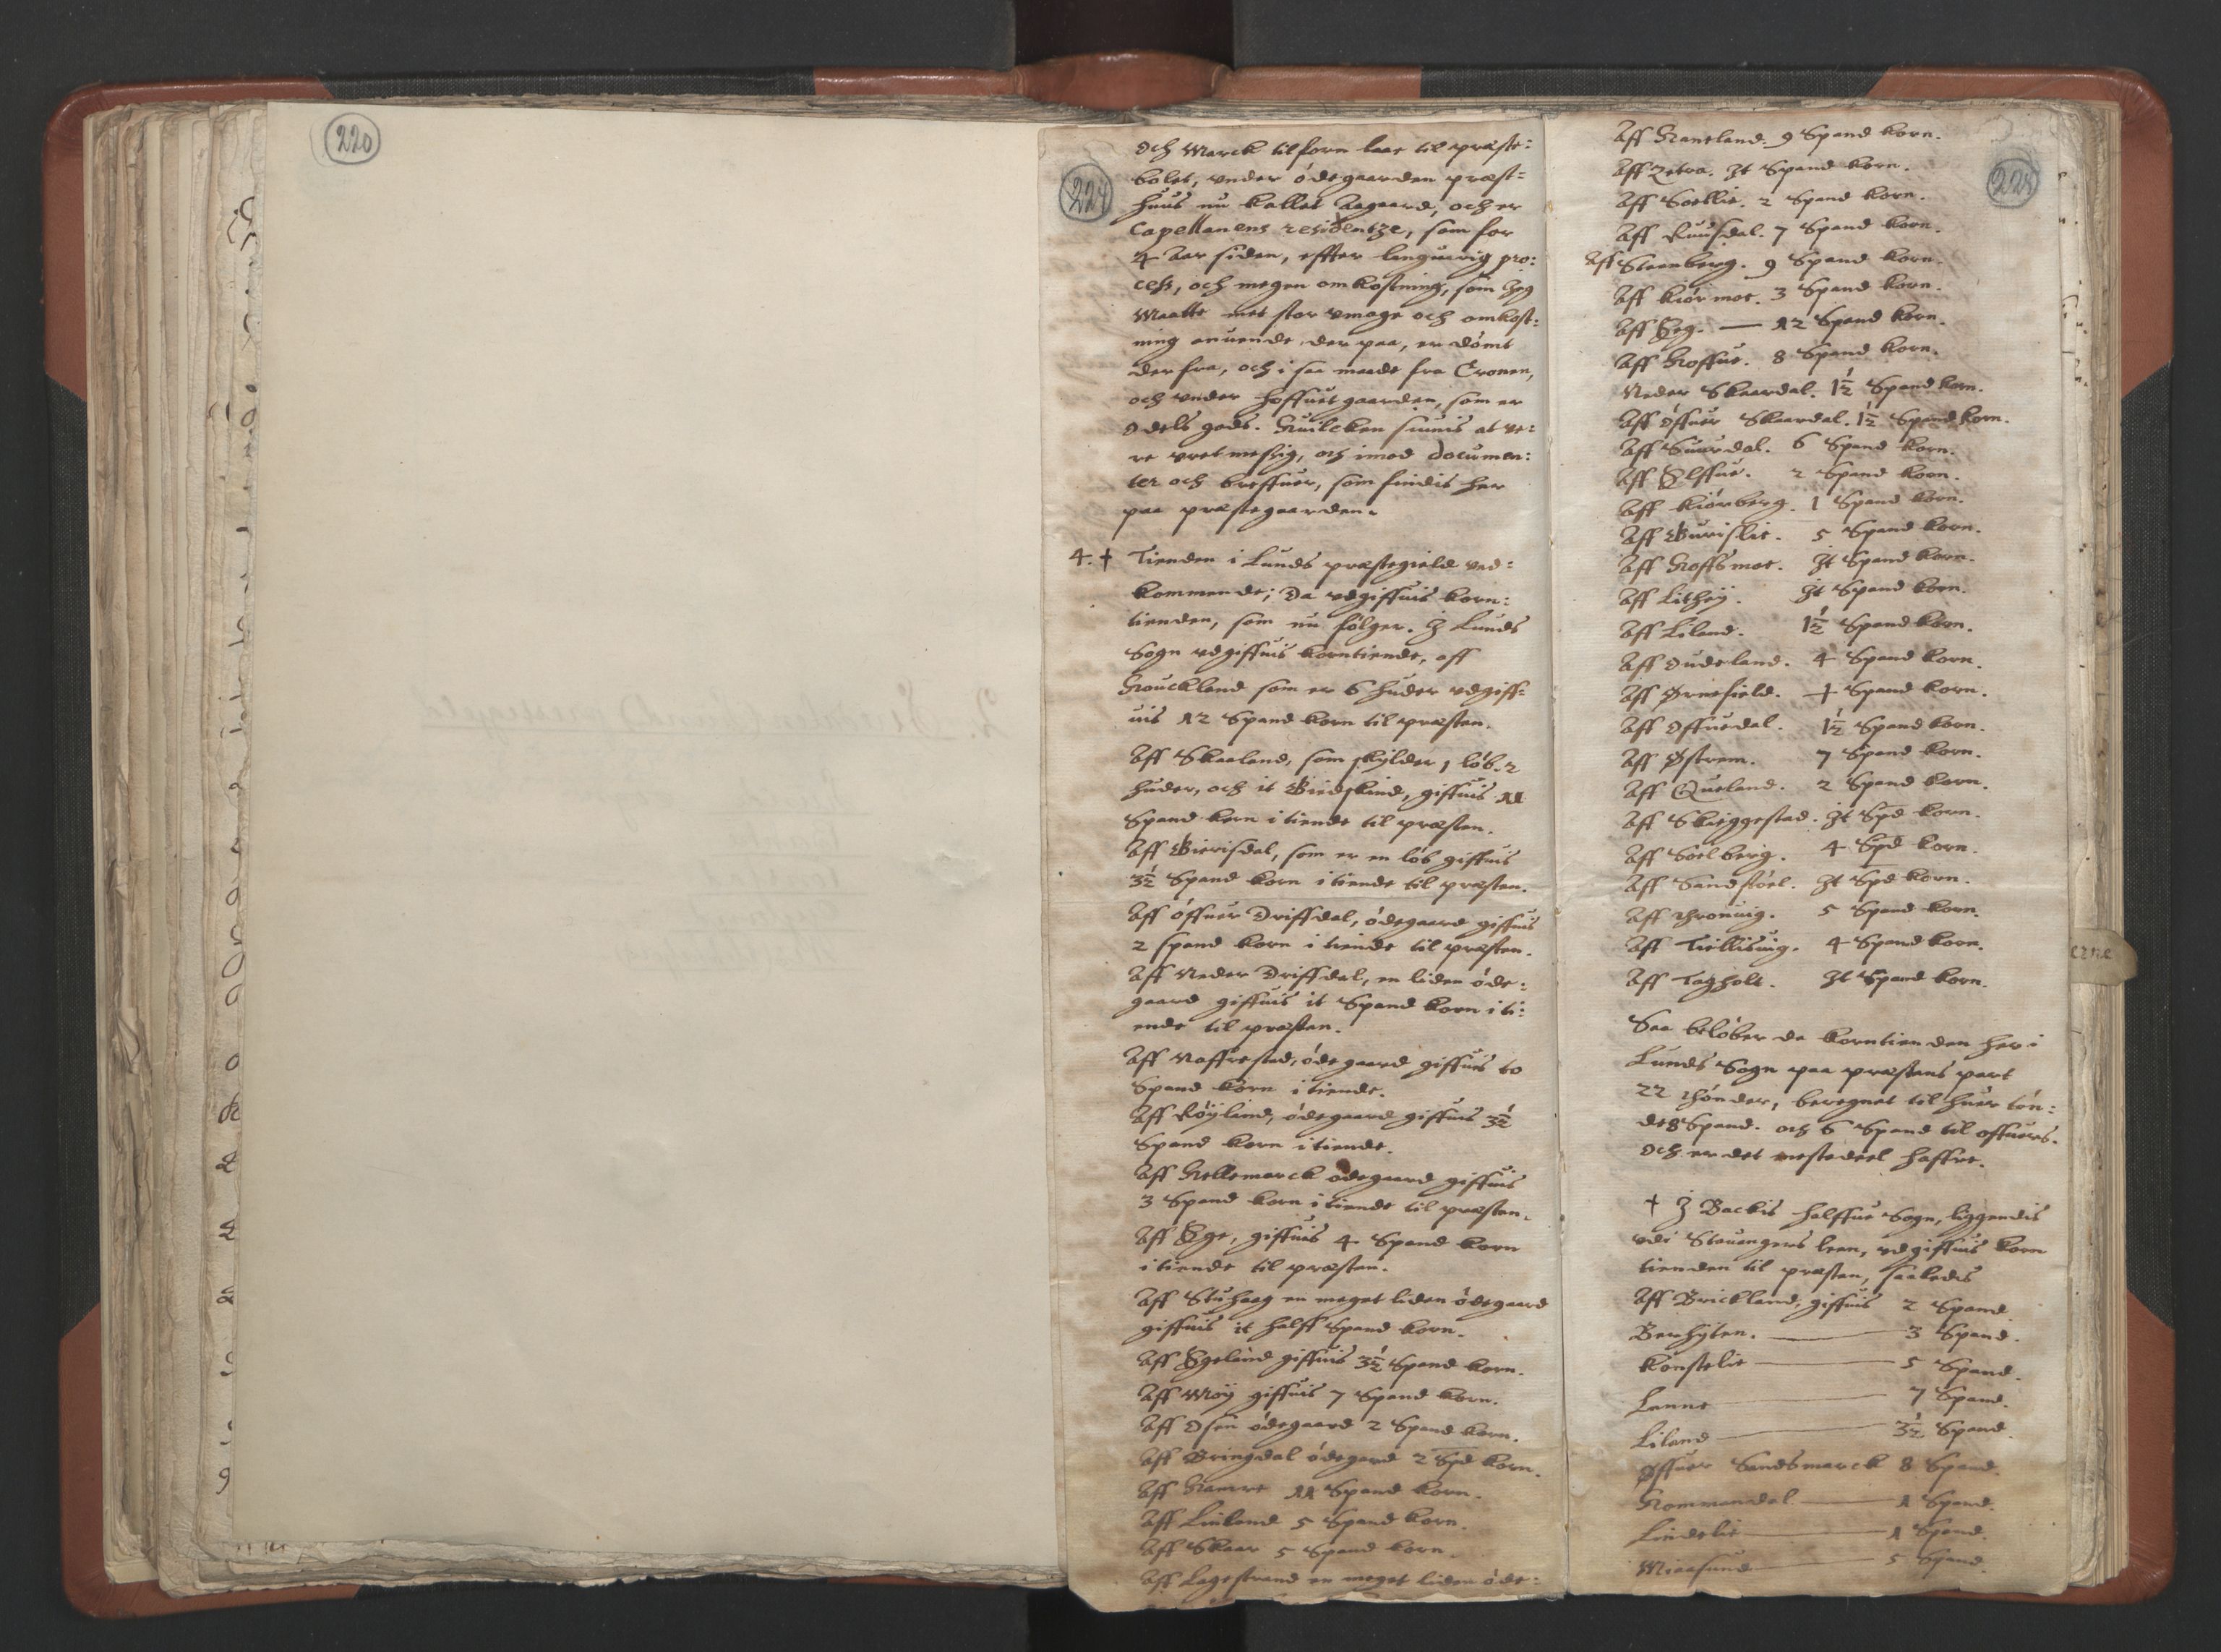 220
224
och Marck tilforn laae til præste:
bolet, vnder ödegaarden præst=
huus nu kallet Aagaard, och er
Capellanens residentze, som for
4 Aar siden, effter languarig pro:
cess, och megen omkostning, som Jeg
Maatte met stor vmage och omkost:
ning anuende der paa, er dömt
der fra, och i saa maade fra Cronen,
och vnder hoffuetgaarden, som er
Odels gods. Huilcken siunis at ve:
re vretmessig, och imod documen:
ter och breffuer, som findis her
paa præstegaarden.
4. † Tienden i Lunds præstegield ved:
kommende; Da vdgiffuis korn:
tienden, som nu fölger. J Lunds
Sogn vdgiffuis korntiende, aff
Houckland som er 6 huder vdgiff=
uis 12 Spand korn til præsten.
Aff Skaaland, som skylder 1 löb. 2
huder, och it Giedskind, giffuis 11
Spand korn i tiende til præsten.
Aff Gierisdal, som er en löb giffuis
3½ Spand korn i tiende til præsten.
Aff öffuer Driffdal, ödegaard giffuis
2 spand korn i tiende til præsten.
Aff Neder Driffdal, en liden öde:
gaard giffuis it Spand korn i ti:
ende til præsten.
Aff Naffrestad, ödegaard giffuis to
Spand korn i tiende.
Aff Röyland, ödegaard giffuis 3½
Spand korn i tiende.
Aff Hellemarck ödegaard giffuis
3 Spand korn i tiende til præsten.
Aff Ege, giffuis 4 Spand korn
i tiende til præsten.
Aff Stuhaag en meget liden ödegaard
giffuis it halff Spand korn.
Aff Egeland giffuis 3½ Spand korn.
Aff Moÿ giffuis 7 Spand korn.
Aff Osen ödegaard 2 Spand korn.
Aff Bringdal ödegard 2 Spd korn.
Aff Hamre 11 Spand korn.
Aff Linland 5 Spand korn.
Aff Skaar 5 Spand korn.
Aff Lagestrand en meget liden öde:
225
Aff Haneland. 9 Spand korn.
Aff Zetra. Jt Spand korn.
Aff Soellie. 2 Spand korn.
Aff Ruusdal. 7 Spand korn.
Aff Steenberg. 9 Spand korn.
Aff kiörmoe. 3 Spand korn.
Aff Eeg. — 12 Spand korn.
Aff Hoffue. 8 Spand korn.
Neder Skaardal. 1½ Spand korn.
Aff öffuer Skaardal. 1½ Spand korn.
Aff Suurdal. 6 Spand korn.
Aff Elffue. 2 Spand korn.
Aff kiörberg. 1 Spand korn.
Aff Gurislie. 5 Spand korn.
Aff Hoffsmoe. Jt Spand korn.
Aff Litheÿ. Jt Spand korn.
Aff Liland. 1½ Spand korn.
Aff Oudeland. 4 Spand korn.
Aff Ørnefield. + Spand korn.
Aff Offuedal. 1½ Spand korn.
Aff Østrem. 7 Spand korn.
Aff Queland. 2 Spand korn.
Aff Skieggestad. Jt Spd korn.
Aff Soelberg. 4 Spd korn.
Aff Sandstöel. Jt Spd korn.
Aff Thronuig. 5 Spand korn.
Aff Tiellisuig. 4 Spand korn.
Aff Tagholt. Jt Spand korn.
Saa belöber da korntienden her i
Lunds Sogn paa præstens part
22 thönder, beregnet til huer tön:
de 8 Spand. och 6 Spand til offuers.
Och er det mestedeel haffre.
† J Backis halffue Sogn, liggendis
vdi Stauangers leen, vdgiffuis korn
tienden til præsten, saaledis
Aff Brickland, giffuis 2 Spand
Berhyten. — 3 Spand.
Konstelie — 5 Spand.
Lanne — 7 Spand.
Liland — 3½ Spand.
Øffuer Sandsmarck 8 Spand.
Hommandal — 1 Spand.
Lindelie — 1 Spand.
Miaasund — 5 Spand.